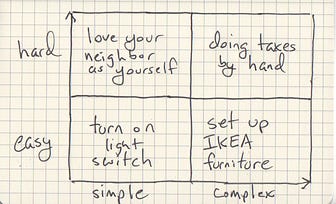 hard
love your
neighbor
as yourself
doing taxes
by hand
easy
turn on
light
switch
set up
IKEA
furniture
simple
complex